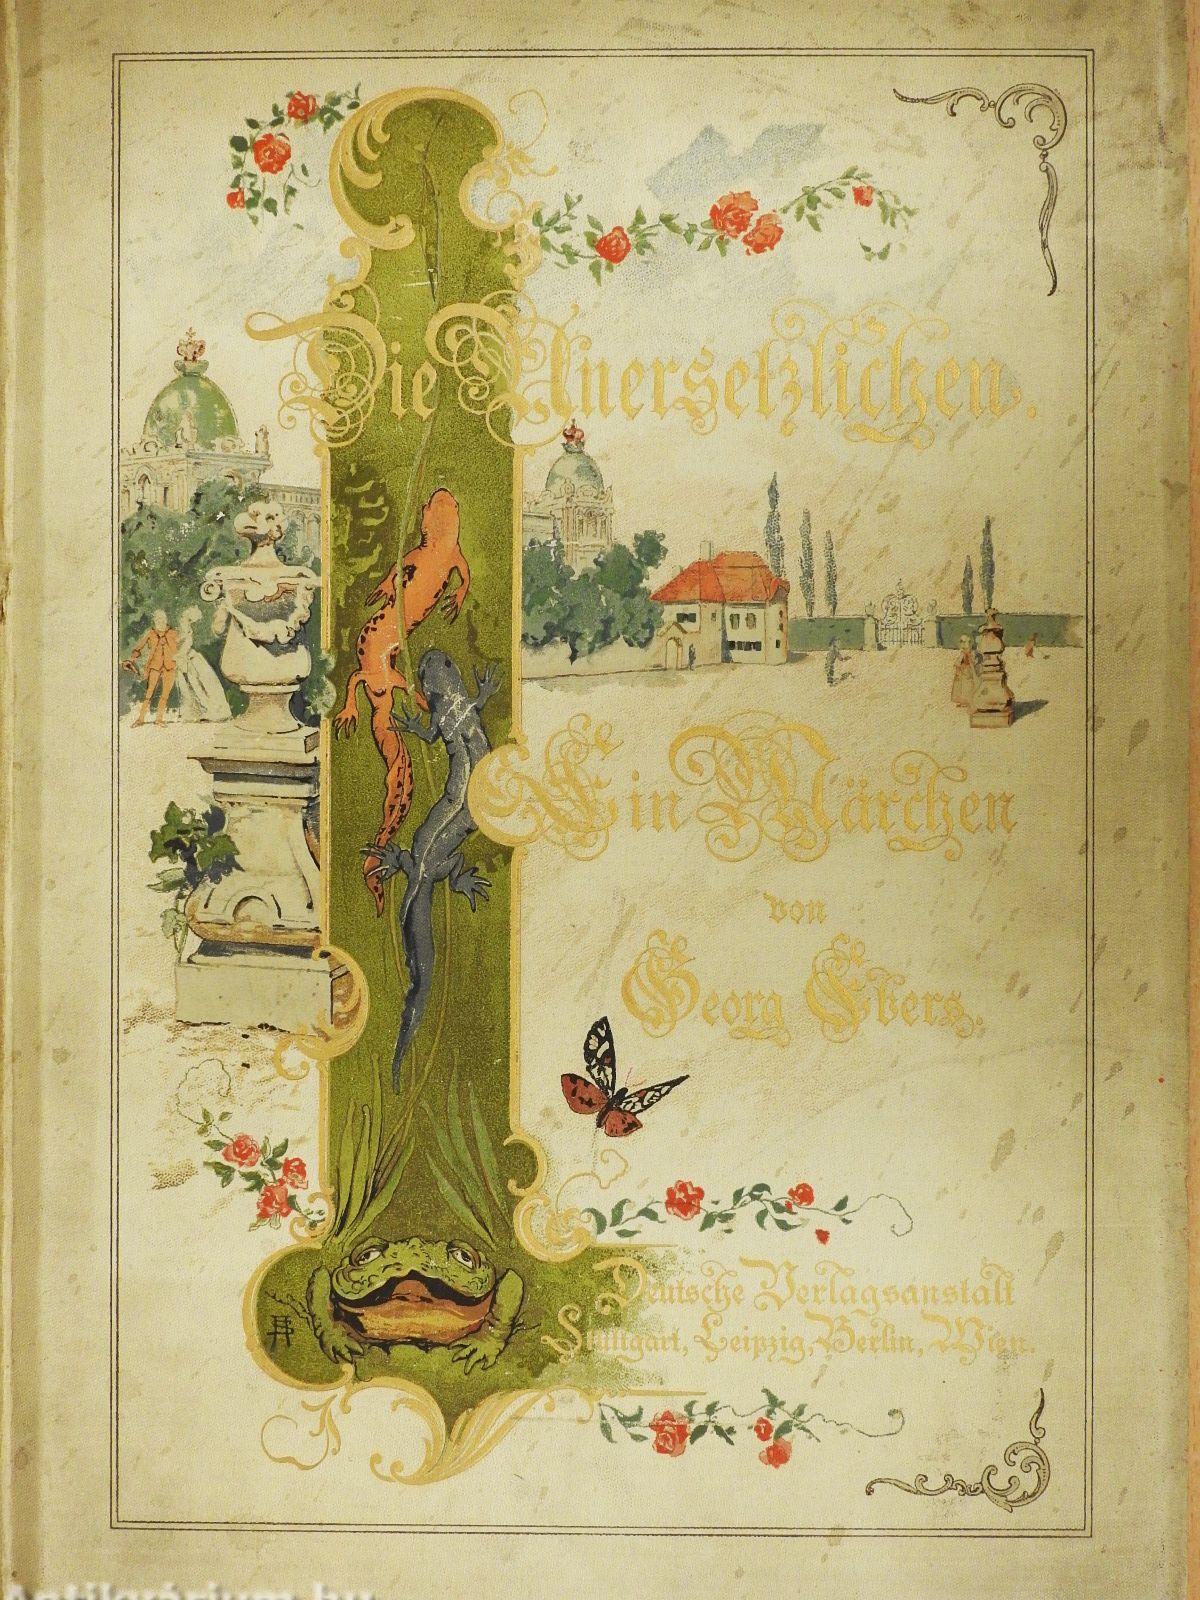 Die Unersetzlichen.
Ein Märchen
von
Georg Ebers.
Deutsche Verlagsanstalt
Stuttgart, Leipzig, Berlin, Wien.
Antikvárium.hu